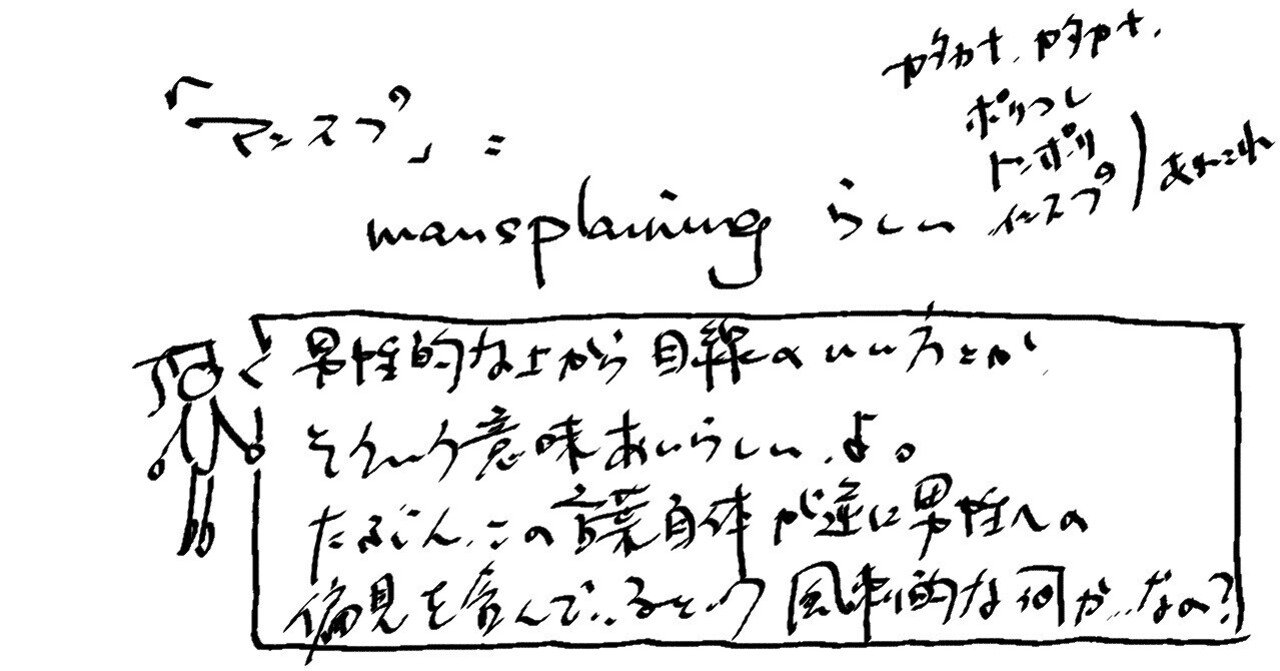 「マンスプ」=
mansplaining らしい
カタカナ、カタカナ、
ポリコレ
トンポリ
インスプ
あれこれ
男性的な上から目線のいい方とか
そういう意味あいらしい、よ。
たぶん、この言葉自体が逆に男性への
偏見を含んでいるという風刺的な何か、なの?